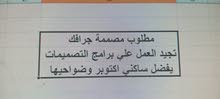 مطلوب مصممة جرافك
تجيد العمل علي برامج التصميمات
يفضل ساكني اكتوبر وضواحيها